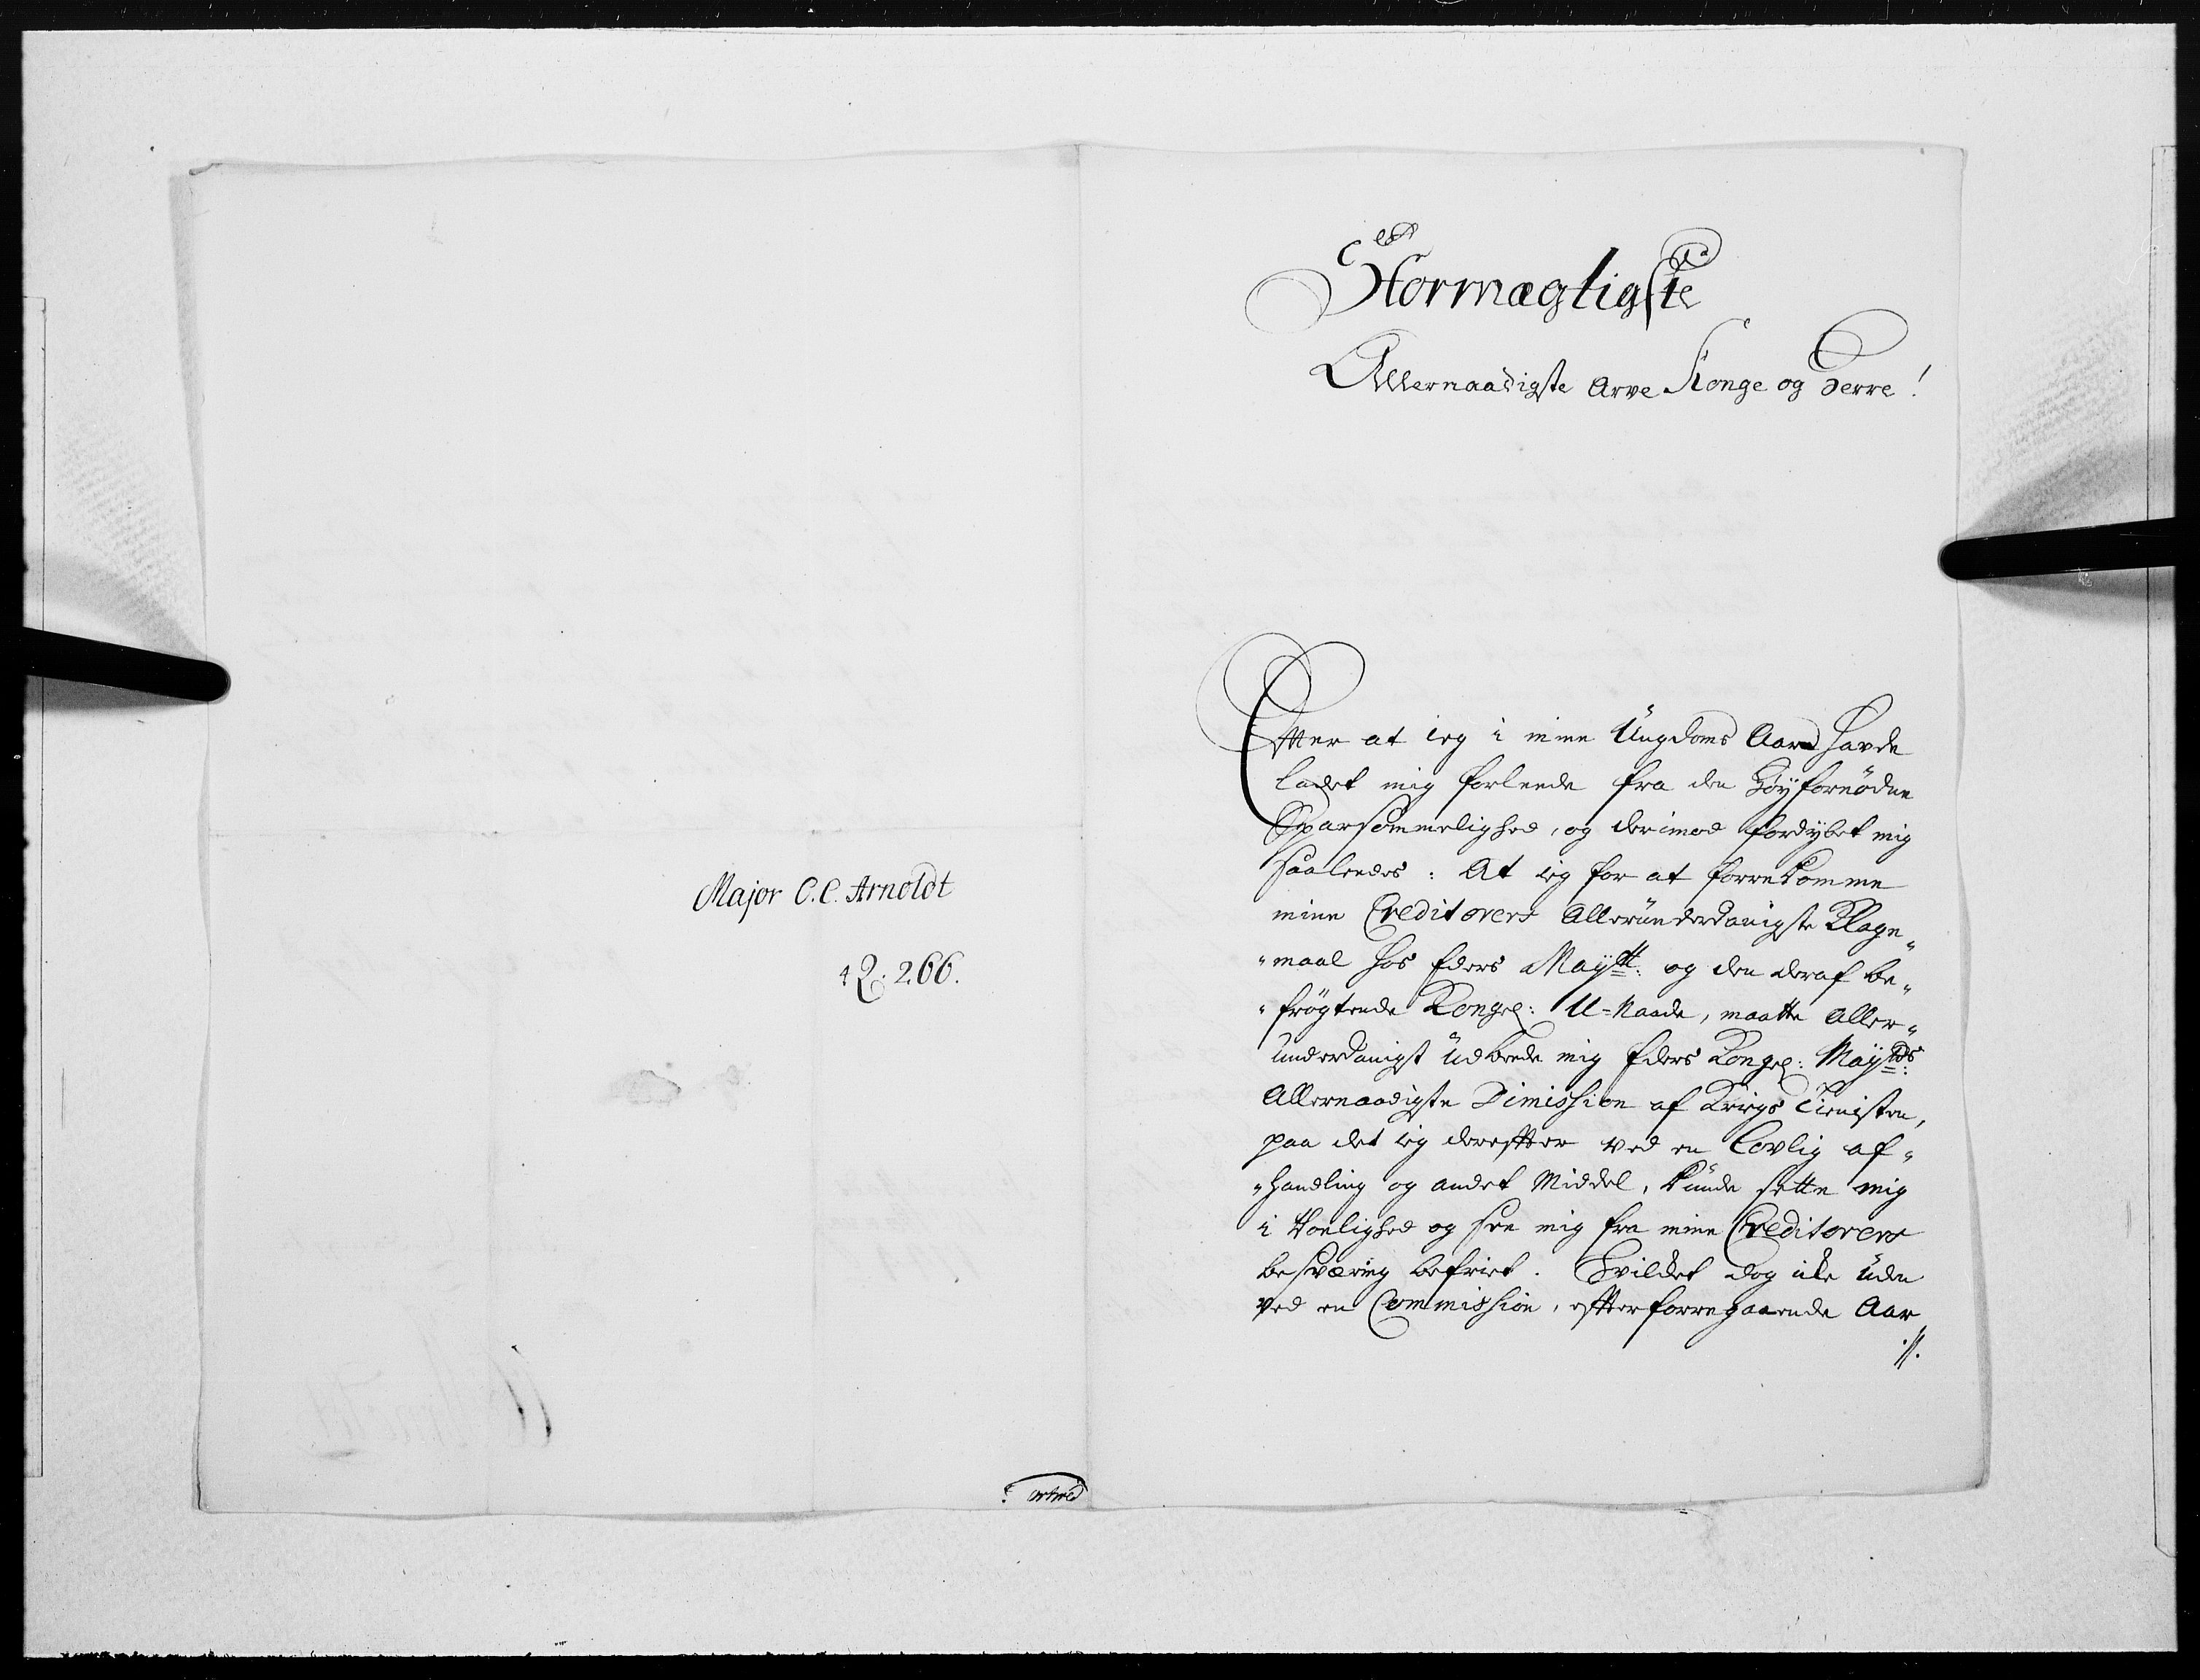 Major C. C. Arnoldt
42: 266.
Stormægtigste
Allernaadigste Arve Konge og Herre!
Efter at ieg i mine Ungdoms Aar havde
ladet mig forleede fra den Høyfornødne
Sparsommelighed, og derimod fordybet mig
saaleedes: At ieg for at forrekomme
mine Creditorers Alleründerdanigste Klage„
„maal hos Eders Maÿtt: og den deraf be„
„frøgtende Kongel: U-Naade, maatte Aller„
Underdanigst Üdbede mig Eders Kongel: Maÿtds:
Allernaadigste Dimission af Kriigs Tienisten,
paa det ieg derefter ved en Lovlig af„
„handling og andet Middel, Kunde sette mig
i Roelighed og see mig fra mine Creditorers
besværing befriet. Hvilket dog icke uden
ved en Commission, efter forregaaende Aar